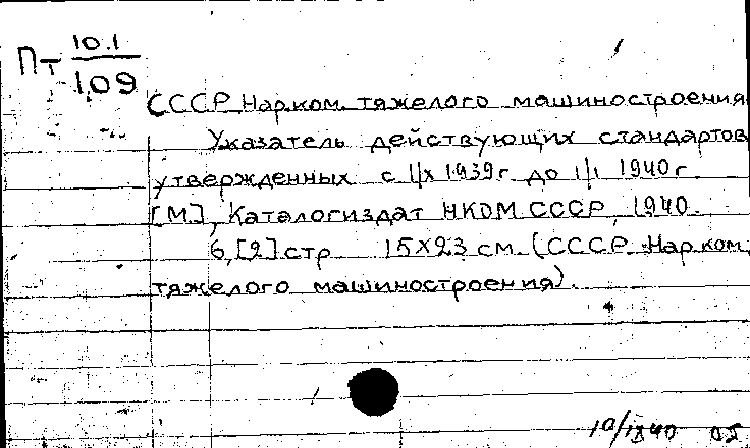 Пт 10.1
109
СССР. Нар.ком. тяжелого машиностроения
Указатель действующих стандартов
утвержденных с 1/X 1939 г. до 1/I 1940 г.
[М.], Каталогиздат НКОМ СССР, 1940.
6, [2] стр 15х23 см. (СССР. Нар.ком.
тяжелого машиностроения).